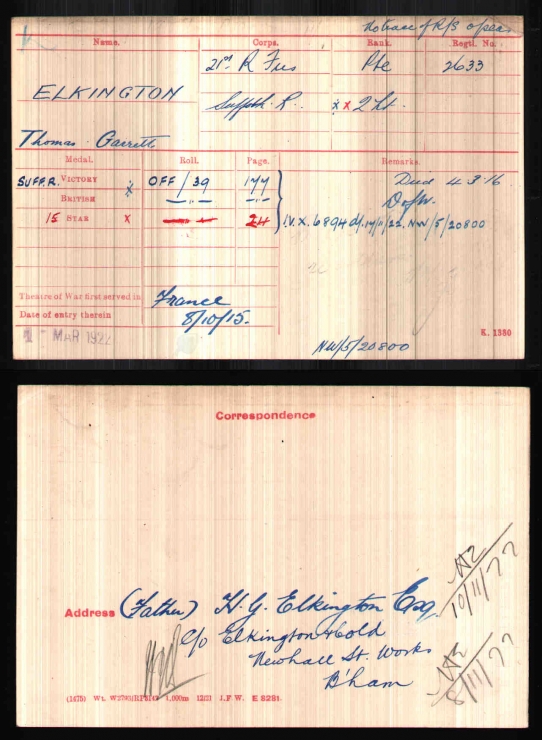 No trace of R/S
Name. Corps. Rank. Regtl. No.
21st R Fus Pte 2633
ELKINGTON
Suffolk. R. x x 2 Lt.
Thomas Garrett
Medal. Roll. Page. Remarks.
SUFF.R. VICTORY x OFF/39 177 Died 4 3 16
BRITISH —"— —"— DofW.
15 STAR x 24 I.V.X. 6894 d/. 17/11/22. NW/5/20800
Theatre of War first served in France
Date of entry therein 8/10/15.
MAR 1922 K. 1380
NW/5/20800
Correspondence
10/11/22
Address (Father) H. G. Elkington Esq.
c/o Elkington & Co Ld
Newhall St. Works
B'ham
8/11/22
(1475) Wt. 1,000m 12/21 J.F.W. E 8281.